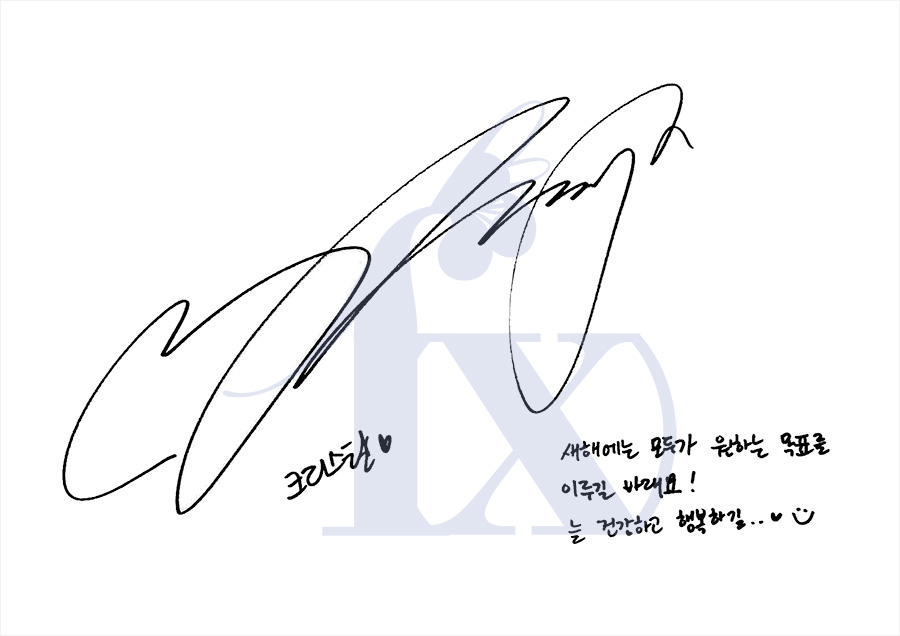 fx
크리스탈♥
새해에는 모두가 원하는 목표를
이루길 바래요!
늘 건강하고 행복하길..♥